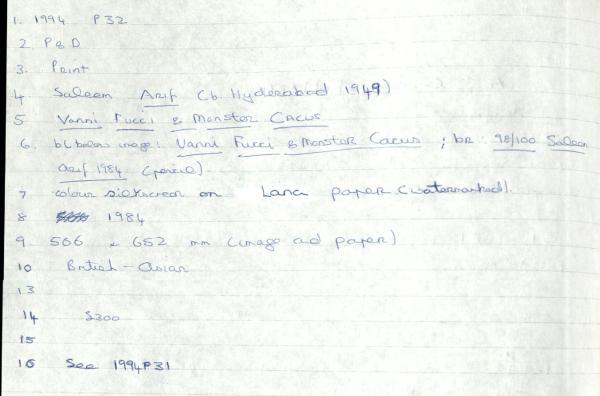 1. 1994 P32
2. P & D
3. Print
4. Saleem Arif (b. Hyderabad 1949)
5 Vanni Fucci & Monster Cacus
6. bl below image: Vanni Fucci & Monster Cacus ; br: 98/100 Saleem
Arif 1984 (pencil).
7 colour silkscreen on Lana paper (watermarked).
8 1984
9 506 x 652 mm (image and paper)
10 British - Asian
13
14 S300
15
16 See 1994P31